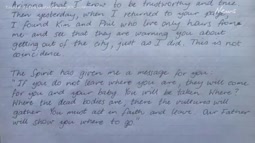 Arizona that I know to be trustworthy and true.
Then yesterday, when I returned to your playlist
I found Kim and Phil who live only hours from
me and see that they are warning you about
getting out of the city, just as I did. This is not
coincidence.
The Spirit has given me a message for you.
"If you do not leave where you are, they will come
for you and your baby. You will be taken. Where?
Where the dead bodies are, there the vultures will
gather. You must act in faith and leave. Our Father
will show you where to go.